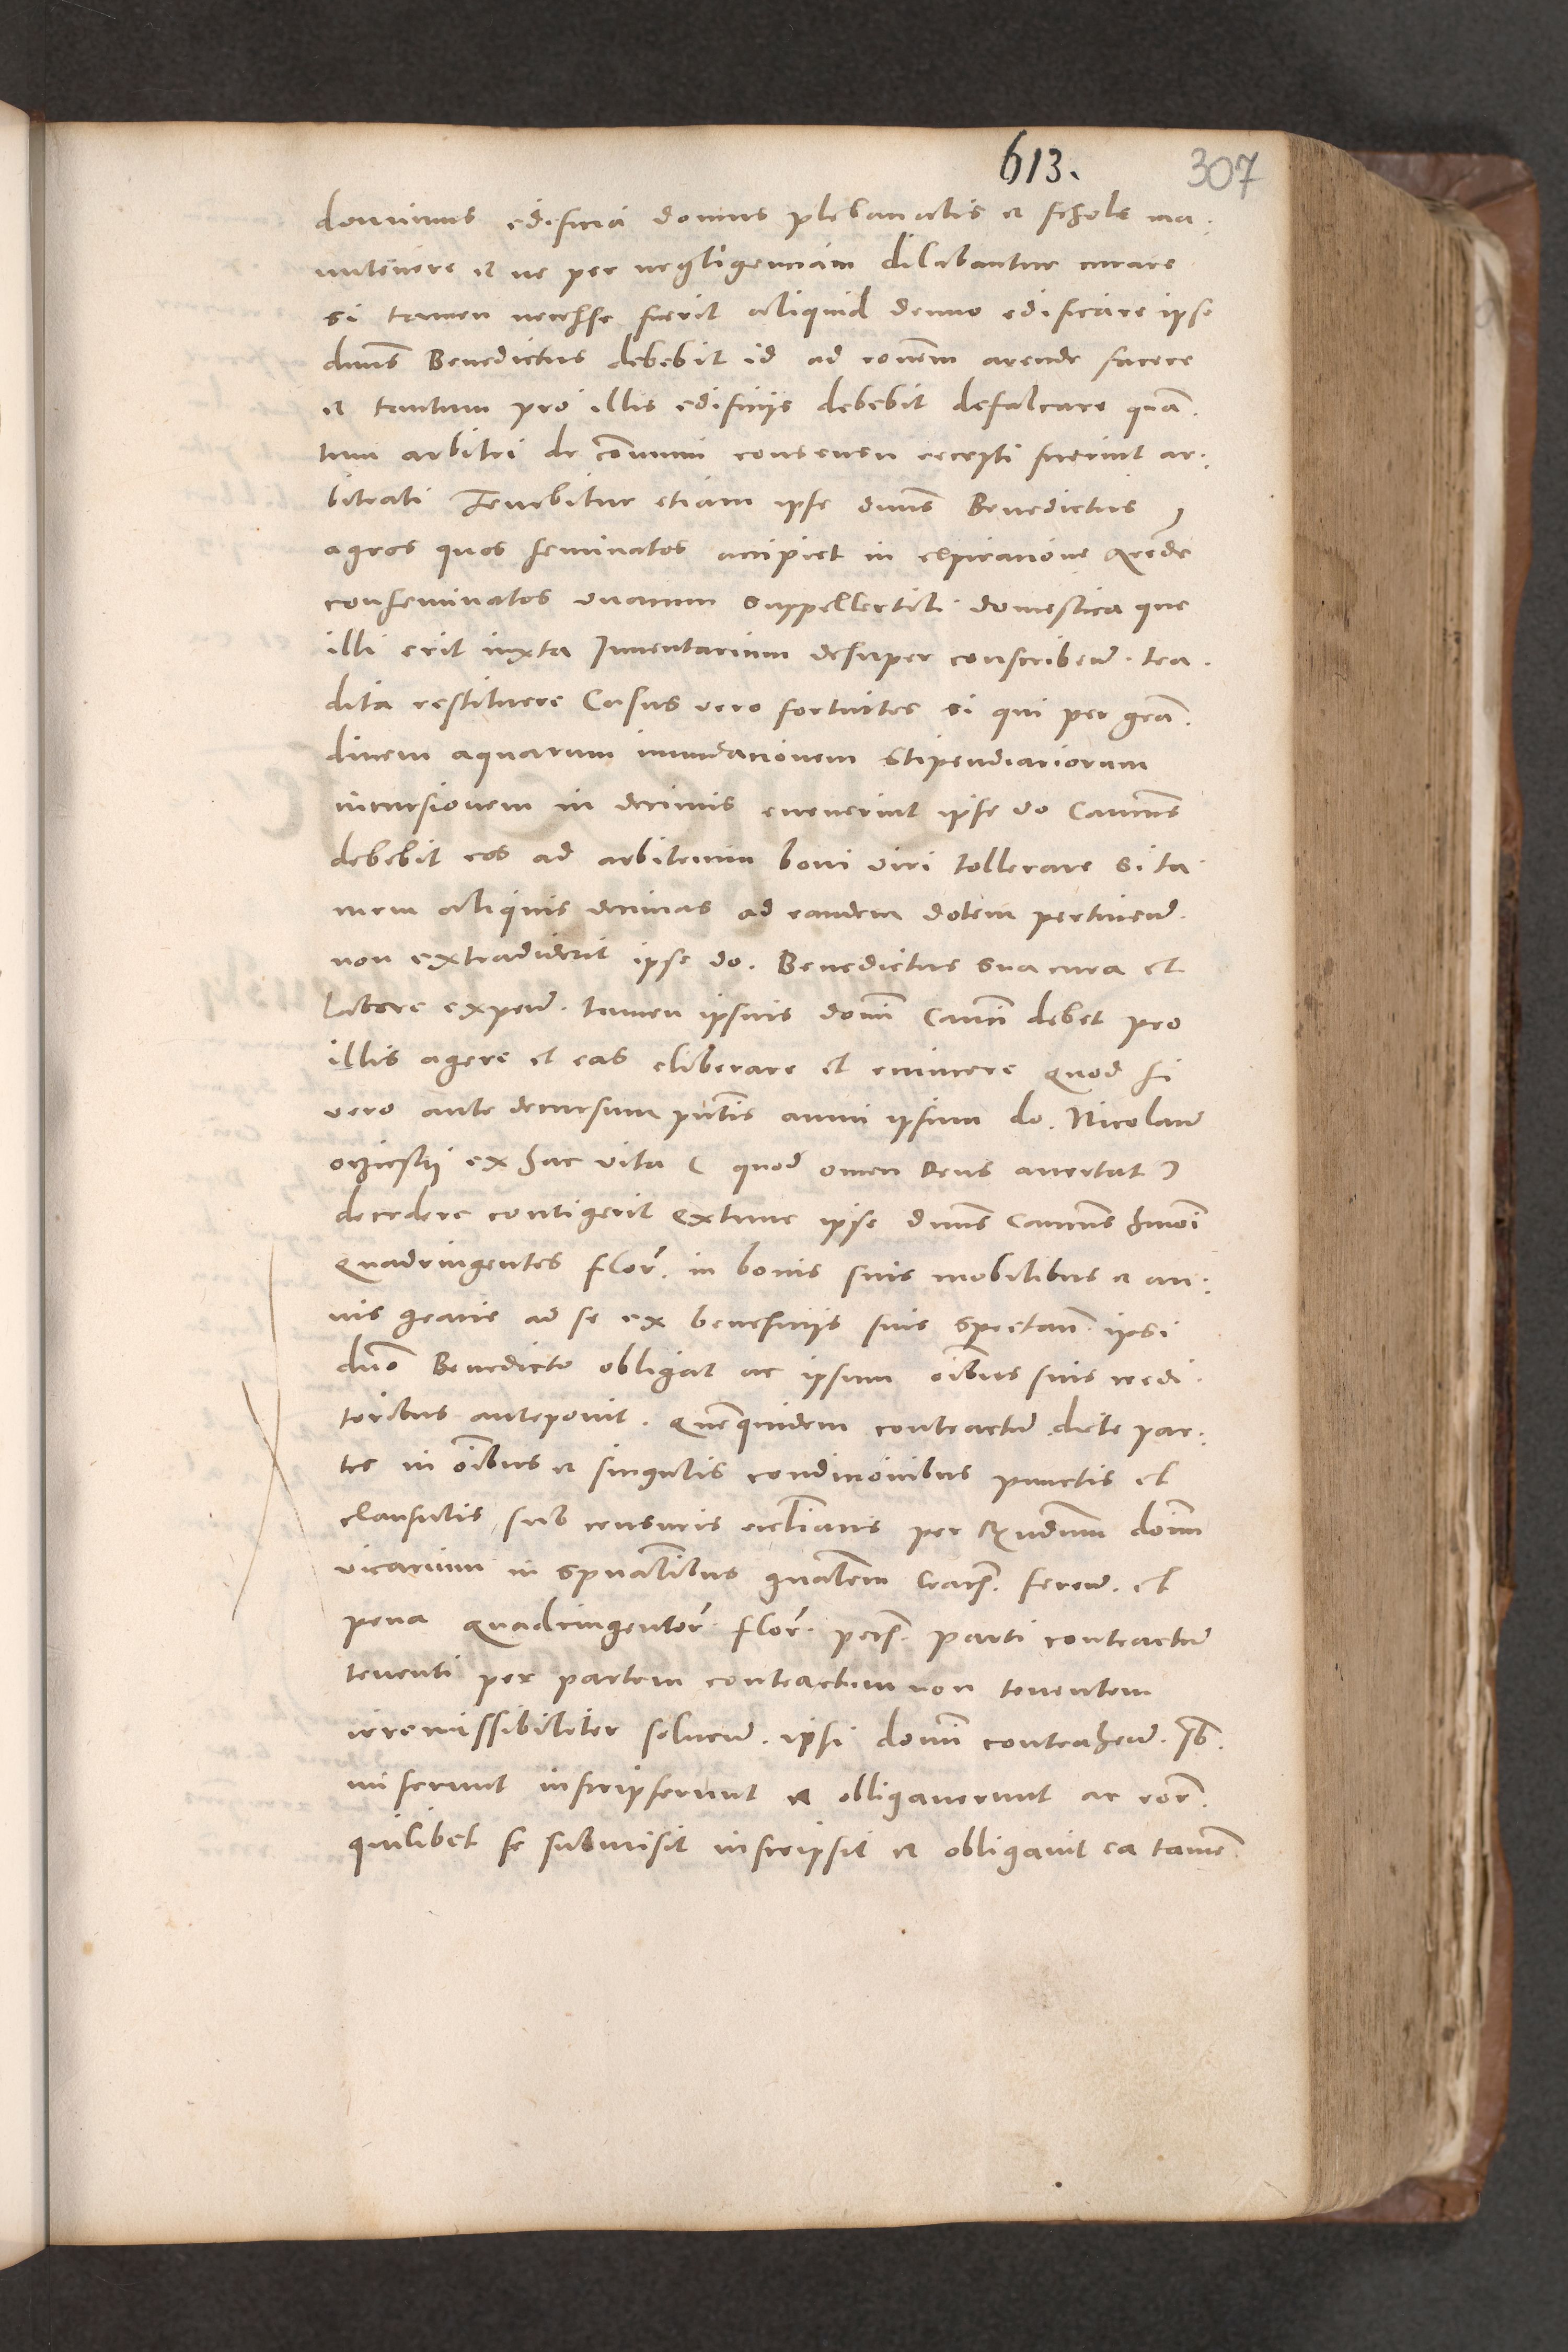 613. 307
dominus edificia domus plebanalis et schole ma.
nutenere et ne per negligenciam dilabantur curare
si tamen necesse fuerit aliquid denuo edificare ipse
dnus Benedictus debebit id ad ronem arende facere
et tantum pro illis edificiis debebit defalcare quā.
tum arbitri de cōmuni consensu recepti fuerint ar:
bitrati Tenebitur etiam ipse dnus Benedictus
agros quos seminatos accipiet in expiratione arēde
conseminatos unacum suppellectili domestica que
illi erit iuxta Inventarium desuper conscribend. tra.
dita restituere Casus vero fortuitos si qui per grā.
dinem aquarum inundacionem stipendiariorum
incursionem in decimis evenerint ipse do Cancus
debebit eos ad arbitrium boni viri tollerare Si ta
men aliquis decimas ad eandem dotem pertinend.
non extradiderit ipse do. Benedictus sua cura et
labore expen. tamen ipsius domi Canci debet pro
illis agere et eas eliberare et evincere Quod si
vero ante decursum pntis anni ipsum do. Nicolaum
ex hac vita ( quod omen Deus avertat )
decedere contigerit Extunc ipse dnus Cancus hmoi
Quadringentos flor. in bonis suis mobilibus et an:
nis gracie ad se ex beneficiis suis spectan. ipsi
dno Benedicto obligat ac ipsum oibus suis credi.
toribus anteponit. Quēquidem contractum dicte par:
tes in oibus et singulis condicionibus punctis et
clausulis sub censuris ecclianis per Rndum domi
vicarium in spualibus gnalem Crac. ferend. et
pena Quadringentor. flor. parti contractum
tenenti per partem contractum non tenentem
irremissibiliter solvend. ipsi domi contrahen. sb.
miserunt inscripserunt et obligaverunt ac eor.
quilibet se submisit inscripsit et obligavit ea tamē